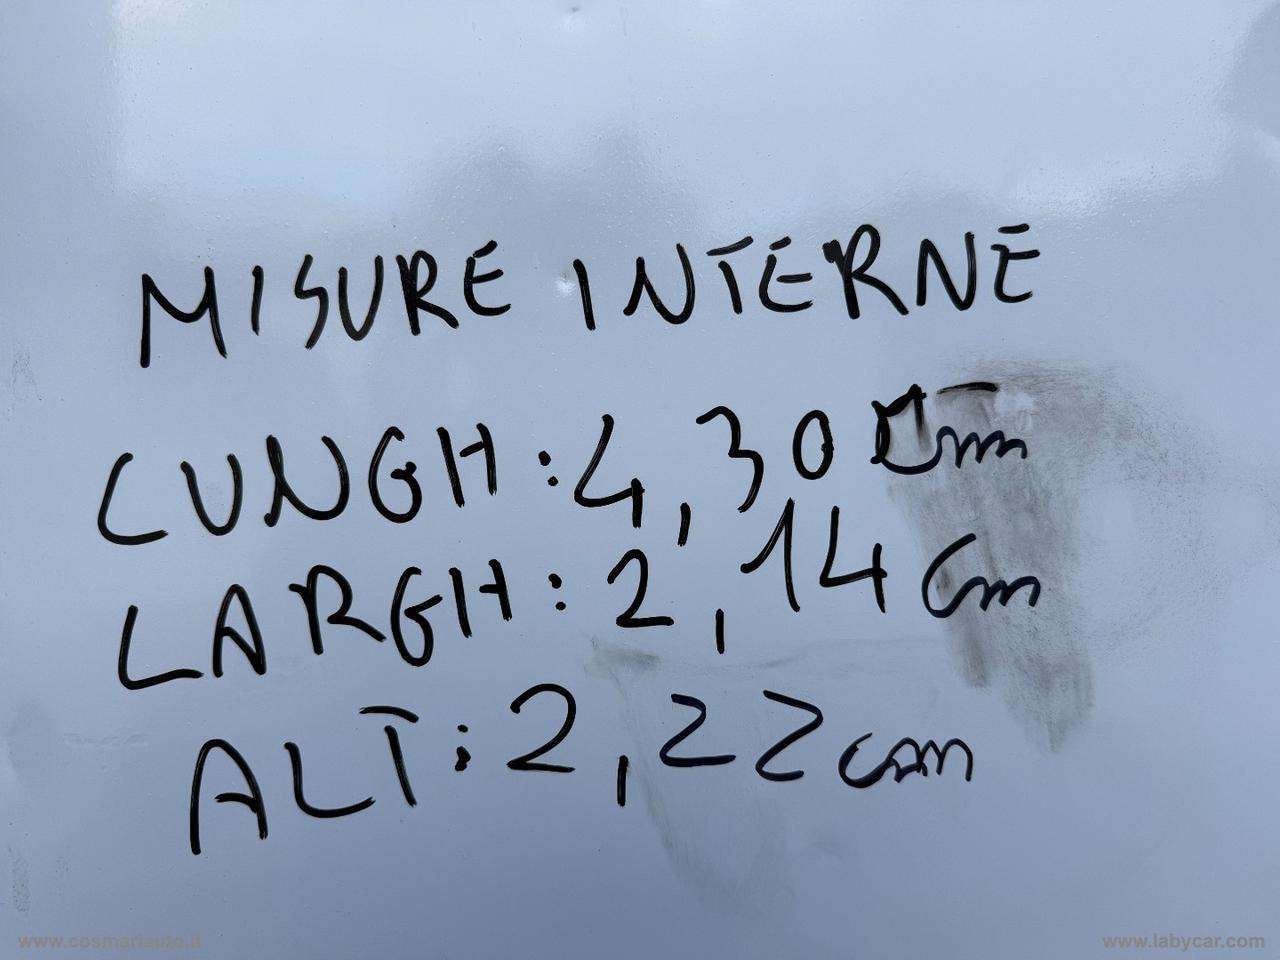 MISURE INTERNE
LUNGH: 4,30 cm
LARGH: 2,14 cm
ALT: 2,22 cm
www.cosmariauto.it
www.labycar.com